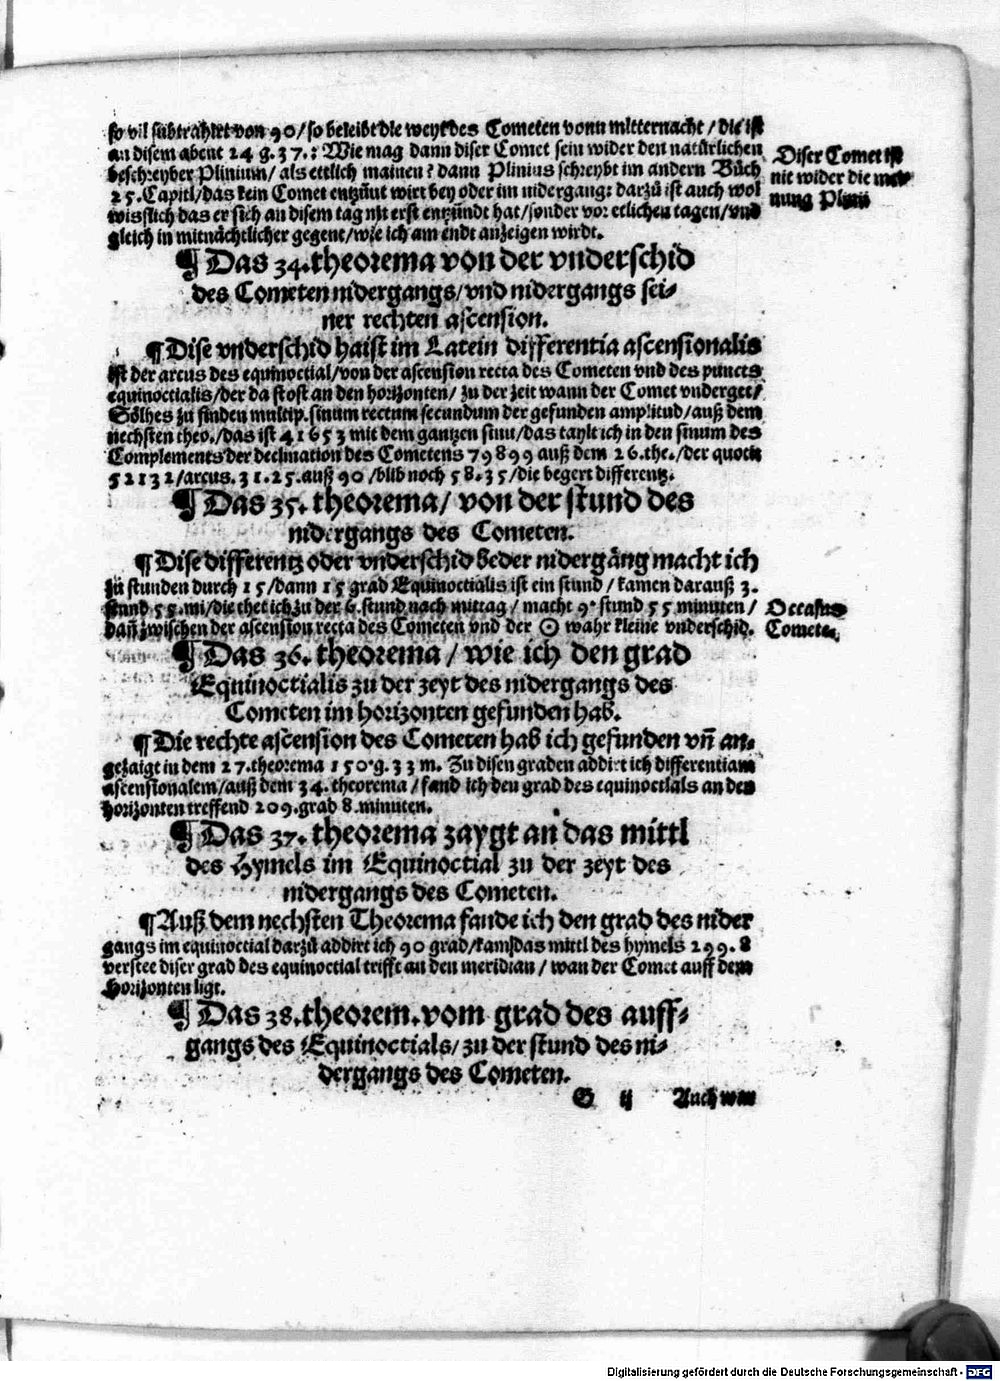 so vil subtrahirt von 90/so beleibt die weyt des Cometen vonn mitternacht / die ist
an disem abent 24 g. 37.: Wie mag dann diser Comet sein wider den natürlichen
beschreyber Plinium/ als ettlich mainen? dann Plinius schreybt im andern Bůch
25. Capitl/das kein Comet entzünt wirt bey oder im nidergang: darzů ist auch wol
wisslich das er sich an disem tag nit erst entzündt hat/sonder vor etlichen tagen/vnd
gleich in mitnächtlicher gegent/wie ich am endt anzeigen wirdt.
Diser Comet ist
nit wider die mei-
nung Plinii
¶ Das 34.theorema von der vnderschid
des Cometen nidergangs/vnd nidergangs sei-
ner rechten ascension.
¶ Dise vnderschid haist im Latein differentia ascensionalis
ist der arcus des equinoctial/von der ascension recta des Cometen vnd des puncts
equinoctialis/der da stost an den horizonten/ zu der zeit wann der Comet vnderget/
Sölhes zu finden multip.sinum rectum secundum der gefunden amplitud/auß dem
nechsten theo./das ist 41653 mit dem gantzen sinu/das taylt ich in den sinum des
Complements der declination des Cometens 79899 auß dem 26.the./der quotit
52132/arcus.31.25.auß 90/blib noch 58.35/die begert differentz.
¶ Das 35. theorema/ von der stund des
nidergangs des Cometen.
¶ Dise differentz oder vnderschid beder nidergäng macht ich
zů stunden durch 15/dann 15 grad Equinoctialis ist ein stund / kamen darauß 3.
stund 55.mi/die thet ich zů der 6.stund nach mittag / macht 9. stund 55 minuten /
dañ zwischen der ascension recta des Cometen vnd der ☉ wahr kleine vnderschid.
Occasus
Cometę.
¶ Das 36. theorema / wie ich den grad
Equinoctialis zu der zeyt des nidergangs des
Cometen im horizonten gefunden hab.
¶ Die rechte ascension des Cometen hab ich gefunden vñ an-
gezaigt in dem 27.theorema 150.g.33 m. Zu disen graden addirt ich differentiam
ascensionalem/auß dem 34.theorema / fand ich den grad des equinoctials an den
horizonten treffend 209.grad 8.minuten.
¶ Das 37. theorema zaygt an das mittl
des Hymels im Equinoctial zu der zeyt des
nidergangs des Cometen.
¶ Auß dem nechsten Theorema fande ich den grad des nider
gangs im equinoctial darzů addirt ich 90 grad/kam das mittl des hymels 299.8
verstee diser grad des equinoctial trifft an den meridian / wan der Comet auff dem
Horizonten ligt.
¶ Das 38.theorem.vom grad des auff-
gangs des Equinoctials/zu der stund des ni-
dergangs des Cometen.
G ij Auch
Digitalisierung gefördert durch die Deutsche Forschungsgemeinschaft - DFG